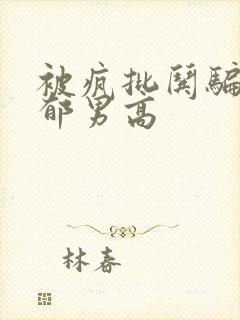 被疯批闋騙
郁男高
林春